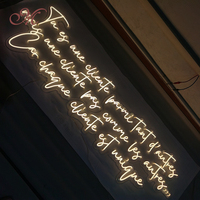 Tu es une cliente parmi tant d'autres
une cliente pas comme les autres...
chaque cliente est unique